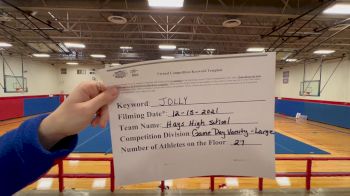 Virtual Competition Keyword Template
Keyword JOLLY
Filming Date*: 12-13-2021
Team Name: Hays High School
Competition Division Game Day Varsity - Large
Number of Athletes on the Floor: 27